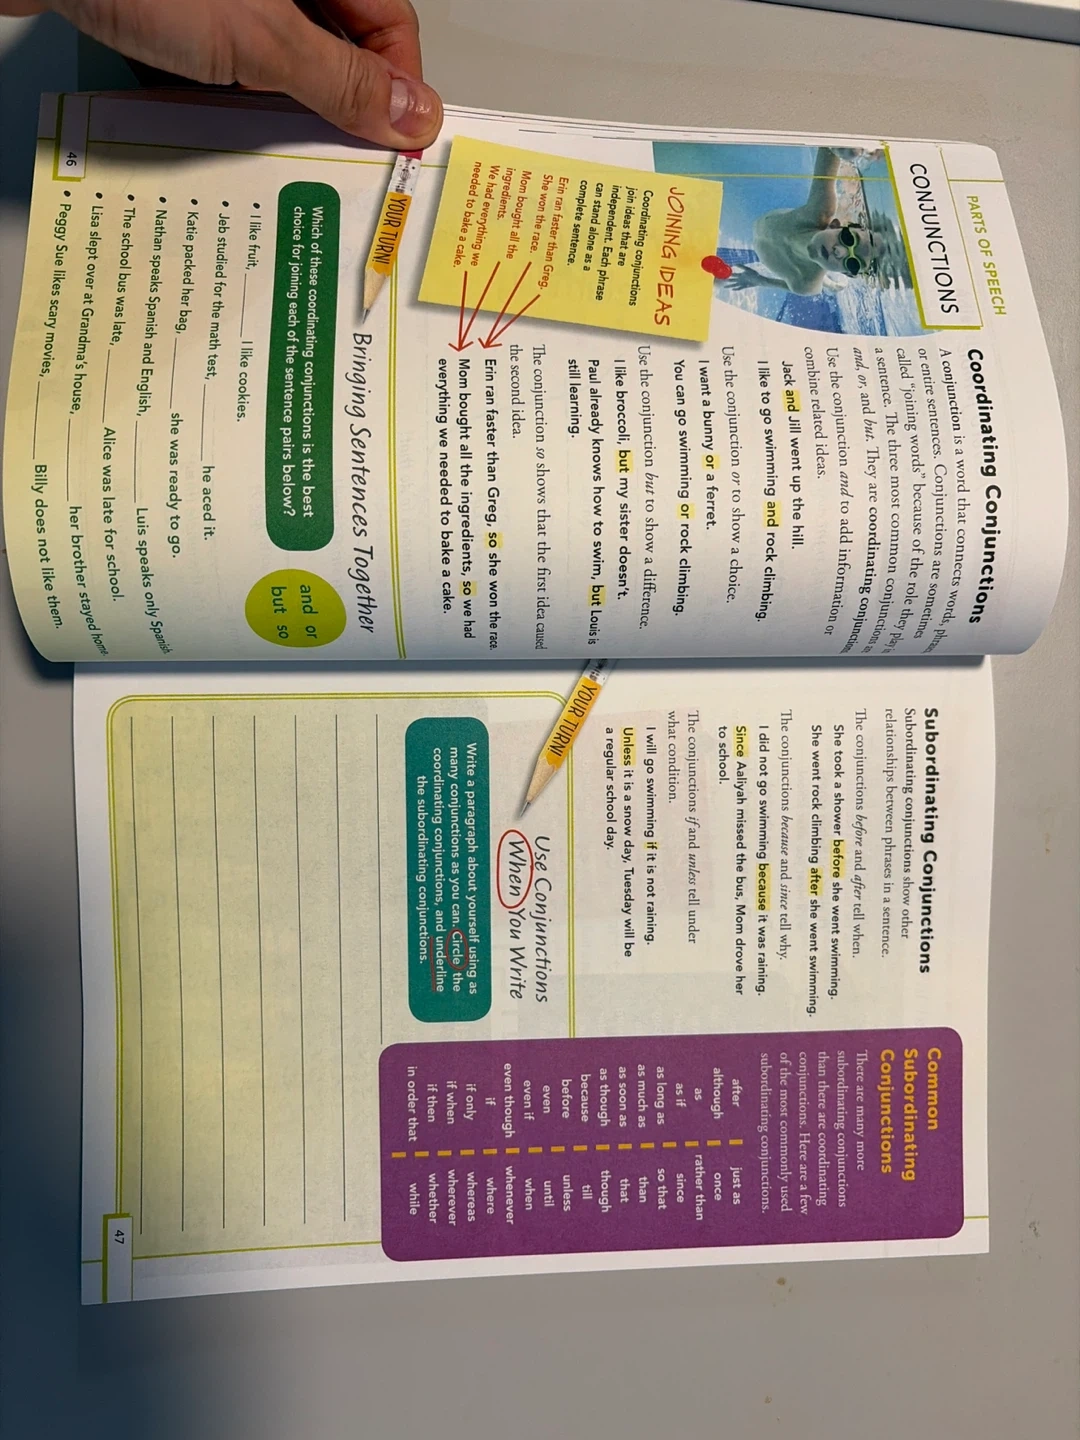 PARTS OF SPEECH
CONJUNCTIONS
Coordinating Conjunctions
A conjunction is a word that connects words,
or entire sentences. Conjunctions are sometimes
called “joining words” because of the role they play
a sentence. The three most common conjunctions
and, or, and but. They are coordinating
Use the conjunction and to add information or
combine related ideas.
Jack and Jill went up the hill.
I like to go swimming and rock climbing.
Use the conjunction or to show a choice.
I want a bunny or a ferret.
You can go swimming or rock climbing.
Use the conjunction but to show a difference.
I like broccoli, but my sister doesn't.
Paul already knows how to swim, but Louis is
still learning.
The conjunction so shows that the first idea caused
the second idea.
Erin ran faster than Greg, so she won the race.
Mom bought all the ingredients, so we had
everything we needed to bake a cake.
JOINING IDEAS
Coordinating conjunctions
join ideas that are
independent. Each phrase
can stand alone as a
complete sentence.
Erin ran faster than Greg.
She won the race.
Mom bought all the
ingredients.
We had everything we
needed to bake a cake.
YOUR TURN!
Bringing Sentences Together
Which of these coordinating conjunctions is the best
choice for joining each of the sentence pairs below?
and or
but so
• I like fruit, ____ I like cookies.
• Jeb studied for the math test, ____ he aced it.
• Katie packed her bag, ____ she was ready to go.
• Nathan speaks Spanish and English, ____ Luis speaks only Spanish.
• The school bus was late, ____ Alice was late for school.
• Lisa slept over at Grandma's house, ____ her brother stayed home.
• Peggy Sue likes scary movies, ____ Billy does not like them.
46
Subordinating Conjunctions
Subordinating conjunctions show other
relationships between phrases in a sentence.
The conjunctions before and after tell when.
She took a shower before she went swimming.
She went rock climbing after she went swimming.
The conjunctions because and since tell why.
I did not go swimming because it was raining.
Since Aaliyah missed the bus, Mom drove her
to school.
The conjunctions if and unless tell under
what condition.
I will go swimming if it is not raining.
Unless it is a snow day, Tuesday will be
a regular school day.
YOUR TURN!
Use Conjunctions
When You Write
Write a paragraph about yourself using as
many conjunctions as you can. Circle the
coordinating conjunctions, and underline
the subordinating conjunctions.
Common
Subordinating
Conjunctions
There are many more
subordinating conjunctions
than there are coordinating
conjunctions. Here are a few
of the most commonly used
subordinating conjunctions.
after just as
although once
as rather than
as if since
as long as so that
as much as than
as soon as that
as though though
because till
before unless
even until
even if when
even though whenever
if where
if only whereas
if when wherever
if then whether
in order that while
47